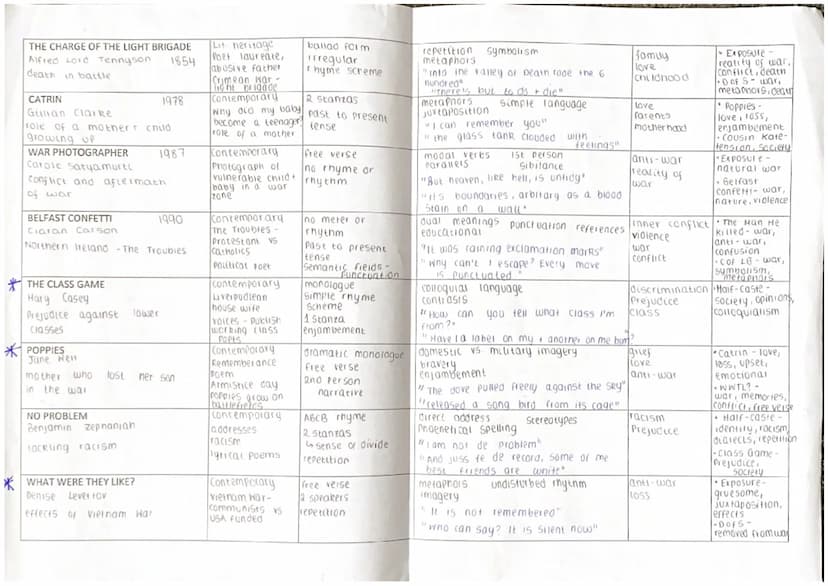 THE CHARGE OF THE LIGHT BRIGADE
Alfred Lord Tennyson 1854
death in battle
Lit heritage
Poet laureate,
abusive father
Crimean War -
light brigade
ballad form
irregular
rhyme scheme
repetition symbolism
metaphors
"Into the valley of Death rode the 6
hundred"
"theirs but to do + die"
family
love
childhood
• Exposure -
reality of war,
conflict, death
• D of S - war,
metaphors, death
CATRIN 1978
Gillian Clarke
role of a mother + child
growing up
Contemporary
Why did my baby
become a teenager
role of a mother
2 stantas
Past to present
tense
metaphors simple language
juxtaposition
"I can remember you"
"the glass tank clouded with
feelings"
love
parents
motherhood
• Poppies -
love, loss,
enjambement
• Cousin Kate-
tension, society
WAR PHOTOGRAPHER 1987
Carole Satyamurti
Conflict and aftermath
of war
Contemporary
Photograph of
vulnerable child +
baby in a war
zone
free verse
no rhyme or
rhythm
modal verbs 1st person
parallels sibilance
"But heaven, like hell, is untidy"
"its boundaries, arbitary as a blood
stain on a wall"
anti-war
reality of
war
• Exposure -
natural war
• Belfast
confetti- war,
nature, violence
BELFAST CONFETTI 1990
Ciaran Carson
Northern Ireland - The Troubles
Contemporary
The Troubles -
Protestant vs
Catholics
Political poet
no meter or
rhythm
Past to present
tense
Semantic fields -
Punctuation
dual meanings punctuation references
educational
"It was raining exclamation marks"
"Why can't I escape? Every move
is punctuated"
inner conflict
violence
war
conflict
• The Man He
Killed - war,
anti-war,
confusion
• C of LB - war,
symbolism,
metaphors
* THE CLASS GAME
Mary Casey
Prejudice against lower
classes
Contemporary
Liverpudlean
house wife
voices - publish
working class
poets
monologue
simple rhyme
scheme
1 stanza
enjambement
colloquial language
contrasts
"How can you tell what class I'm
from?"
"Have I a label on my + another on me bum?
discrimination
Prejudice
class
• Half-caste -
society, opinions,
colloquialism
* POPPIES
Jane Weir
mother who lost her son
in the war
Contemporary
Rememberance
poem
Armistice day
poppies grow on
battlefields
dramatic monologue
free verse
2nd Person
narrative
domestic vs military imagery
bravery
enjambement
"The dove pulled freely against the sky"
"released a song bird from its cage"
grief
love
anti-war
• Catrin - love,
loss, upset,
emotional
• WWTL? -
war, memories,
conflict, free verse
NO PROBLEM
Benjamin Zephaniah
tackling racism
Contemporary
addresses
racism
lyrical poems
ABCB rhyme
2 stantas
↳ sense of divide
repetition
direct address stereotypes
Phoenetical spelling
"I am not de problem"
"And juss fe de record, some of me
best friends are white"
racism
Prejudice
• Half-caste -
identity, racism,
dialects, repetition
• Class Game -
Prejudice,
society
* WHAT WERE THEY LIKE?
Denise Levertov
effects of Vietnam War
Contemporary
Vietnam War-
communists vs
USA funded
free verse
2 speakers
repetition
metaphors undisturbed rhythm
imagery
"It is not remembered"
"Who can say? It is silent now"
anti-war
loss
• Exposure -
gruesome,
juxtaposition,
effects
• D of S -
removed from war